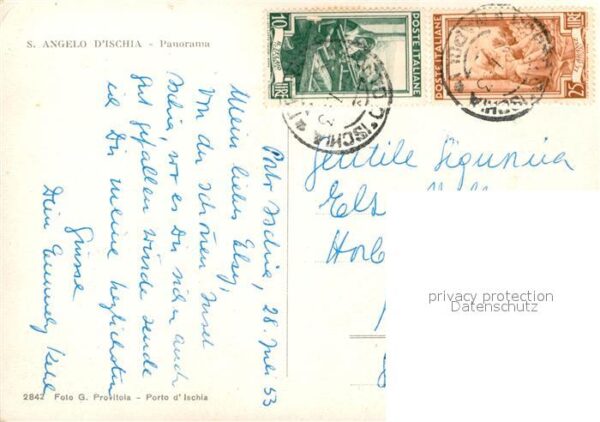 S. ANGELO D'ISCHIA - Panorama
Porto Ischia, 28. Juli 53
Mein liebes Elsy,
Von der schönen Insel
Ischia, wo es Dir sicher auch
gut gefallen würde sende
ich Dir meine herzlichsten
Grüsse
Dein
2842 Foto G. Provitola - Porto d'Ischia
10
LIRE
POSTE ITALIANE
POSTE ITALIANE
LIRE
25
D'ISCHIA
D'ISCHIA
Gentile Signora
Els
Horb
privacy protection
Datenschutz